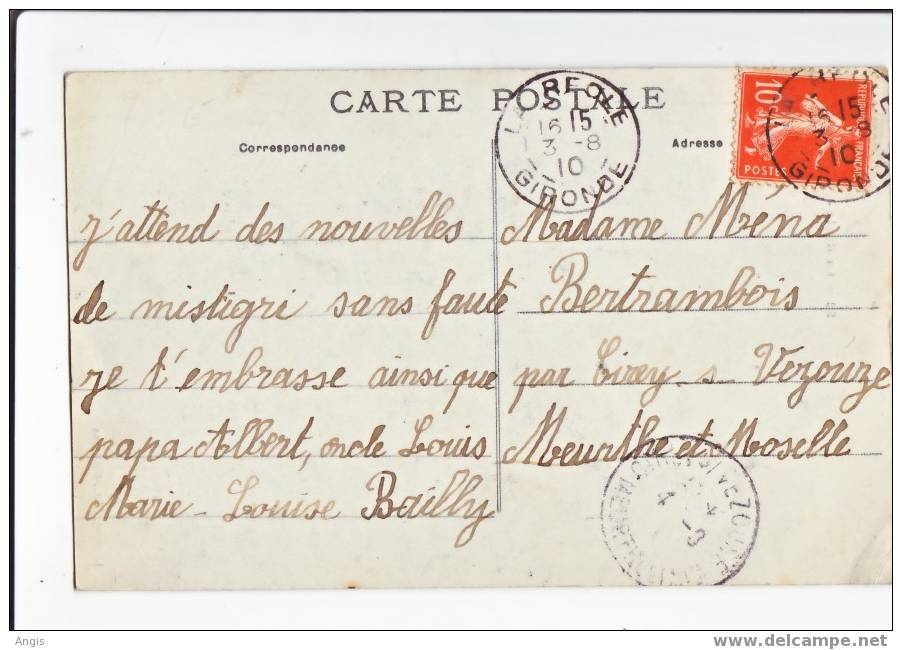 CARTE POSTALE
Correspondance
Adresse
j'attend des nouvelles
de mistigri sans faute
je t'embrasse ainsi que
papa Albert, oncle Louis
Marie-Louise Bailly
Madame Ména
Bertrambois
par Cirey s Vezouze
Meurthe et Moselle
LA REOLE
16 15
3 -8
10
GIRONDE
10
REPUBLIQUE FRANÇAISE
POSTES
LA REOLE
15
8
10
GIRONDE
CIREY S/VEZOUZE
4
Angis
www.delcampe.net